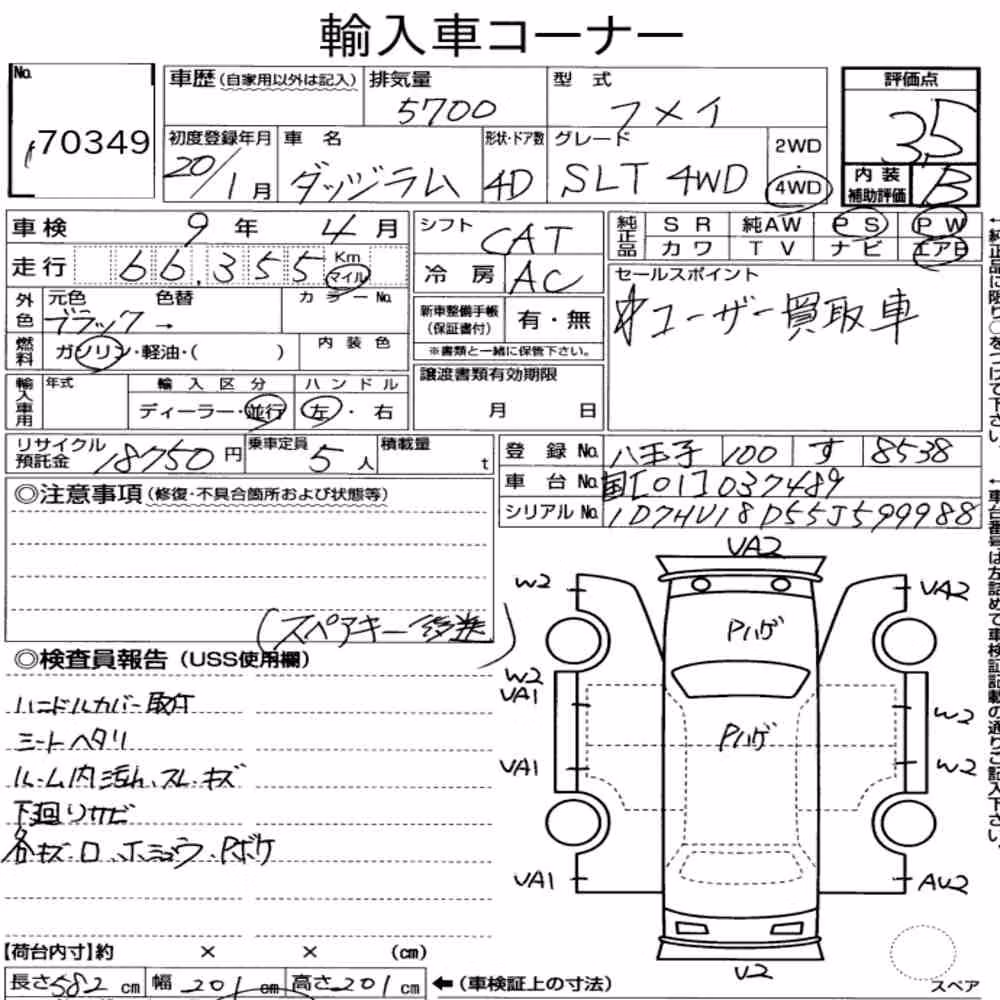 輸入車コーナー
No. 70349
車歴(自家用以外は記入) 排気量 5700 型式 フメイ
評価点 3.5
初度登録年月 20/1月 車名 ダッジラム 形状・ドア数 4D グレード SLT 4WD 2WD・4WD
内装補助評価 B
車検 9年 4月 シフト CAT 純正品 SR 純AW PS PW
カワ TV ナビ エアB
走行 66,355 Km マイル 冷房 AC
セールスポイント
ユーザー買取車
外色 元色 ブラック 色替 → カラーNo.
新車整備手帳(保証書付) 有・無
※書類と一緒に保管下さい。
燃料 ガソリン・軽油・( ) 内装色
輸入車用 年式 輸入区分 ハンドル
ディーラー・並行 左・右
譲渡書類有効期限
月 日
リサイクル預託金 18750円 乗車定員 5人 積載量 t
登録No. 八王子 100 す 8538
車台No. 国[01]037489
シリアルNo. 1D7HU18D55J599988
◎注意事項(修復・不具合箇所および状態等)
(スペアキー後送)
◎検査員報告(USS使用欄)
ハンドルカバー取付
シートヘタリ
ルーム内汚れ、スレ・キズ
下廻りサビ
各キズ・
VA2
W2 VA2
Pハゲ
W2
VA1 W2
Pハゲ
VA1 W2
VA1 AU2
V2
スペア
【荷台内寸】約 × × (cm)
長さ582cm 幅201cm 高さ201cm ←(車検証上の寸法)
←純正品に限り○をつけて下さい。
←車台番号は左詰めで車検証記載の通りご記入下さい。